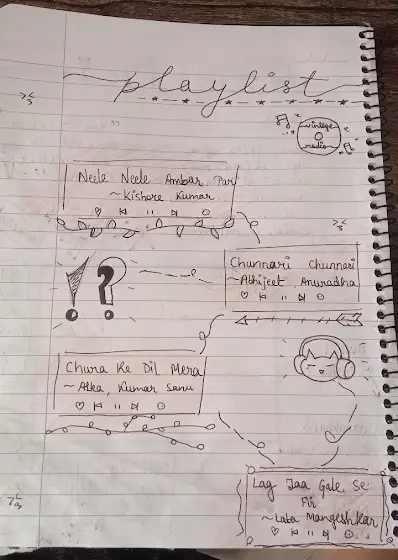 playlist
vintage
radio
Neele Neele Ambar Par
~ Kishore Kumar
Chunnari Chunnari
~ Abhijeet, Anuradha
!?
Chura Ke Dil Mera
~ Alka, Kumar Sanu
Lag Jaa Gale Se
Fir
~ Lata Mangeshkar